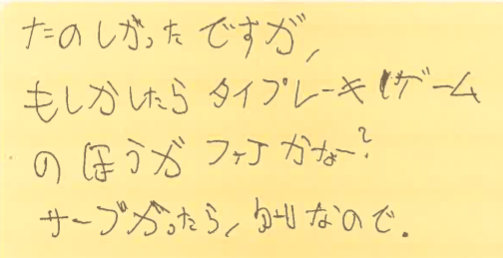 たのしがったですが,
もしかしたら タイプレーキ ゲーム
の ほうが フェア かなー?
サーブがったら, 自由なので.